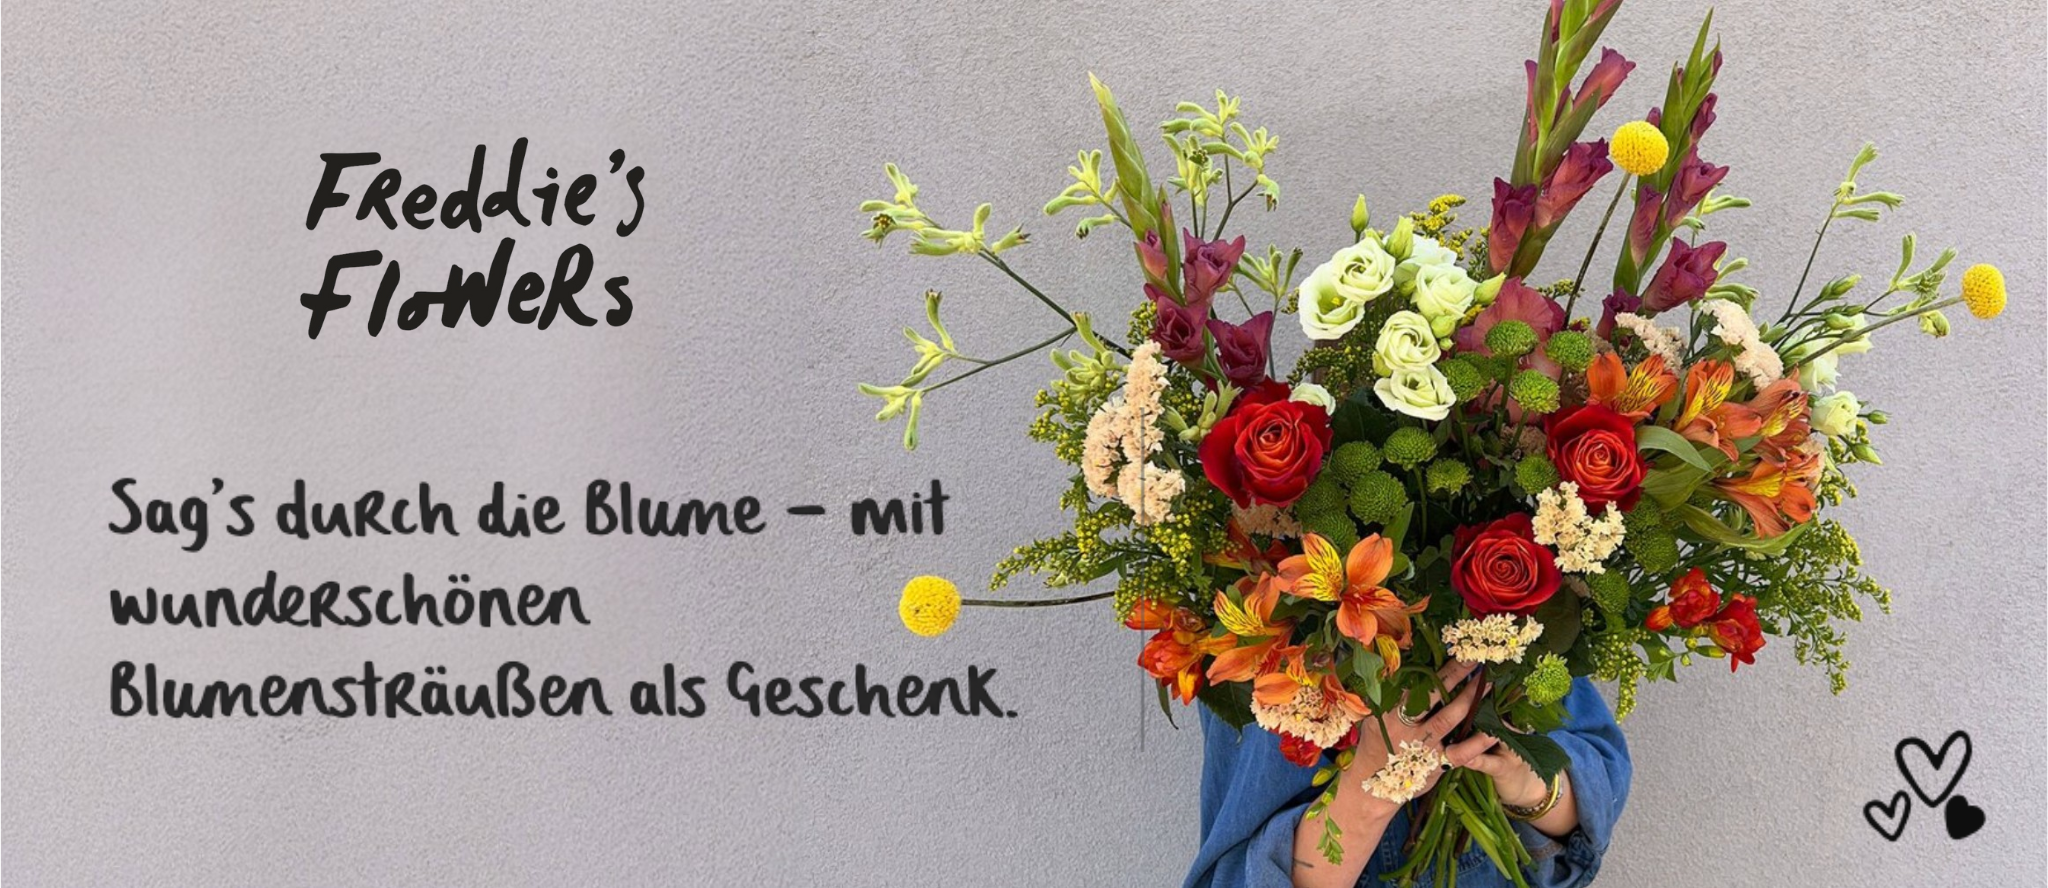 Freddie's
Flowers
Sag's durch die Blume – mit
wunderschönen
Blumensträußen als Geschenk.